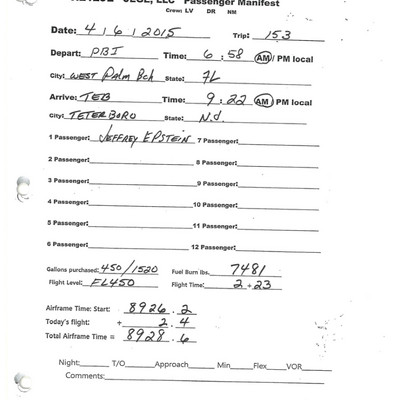 JEGE, LLC Passenger Manifest
Crew: LV DR NM
Date: 4/6/2015 Trip: 153
Depart: PBI Time: 6:58 AM/PM local
City: WEST PALM BCH State: FL
Arrive: TEB Time: 9:22 AM/PM local
City: TETERBORO State: N.J.
1 Passenger: JEFFREY EPSTEIN 7 Passenger:
2 Passenger: 8 Passenger:
3 Passenger: 9 Passenger:
4 Passenger: 10 Passenger:
5 Passenger: 11 Passenger:
6 Passenger: 12 Passenger:
Gallons purchased: 450/1520 Fuel Burn lbs. 7481
Flight Level: FL450 Flight Time: 2+23
Airframe Time: Start: 8926.2
Today's flight: + 2.4
Total Airframe Time = 8928.6
Night: T/O Approach Min Flex VOR
Comments: